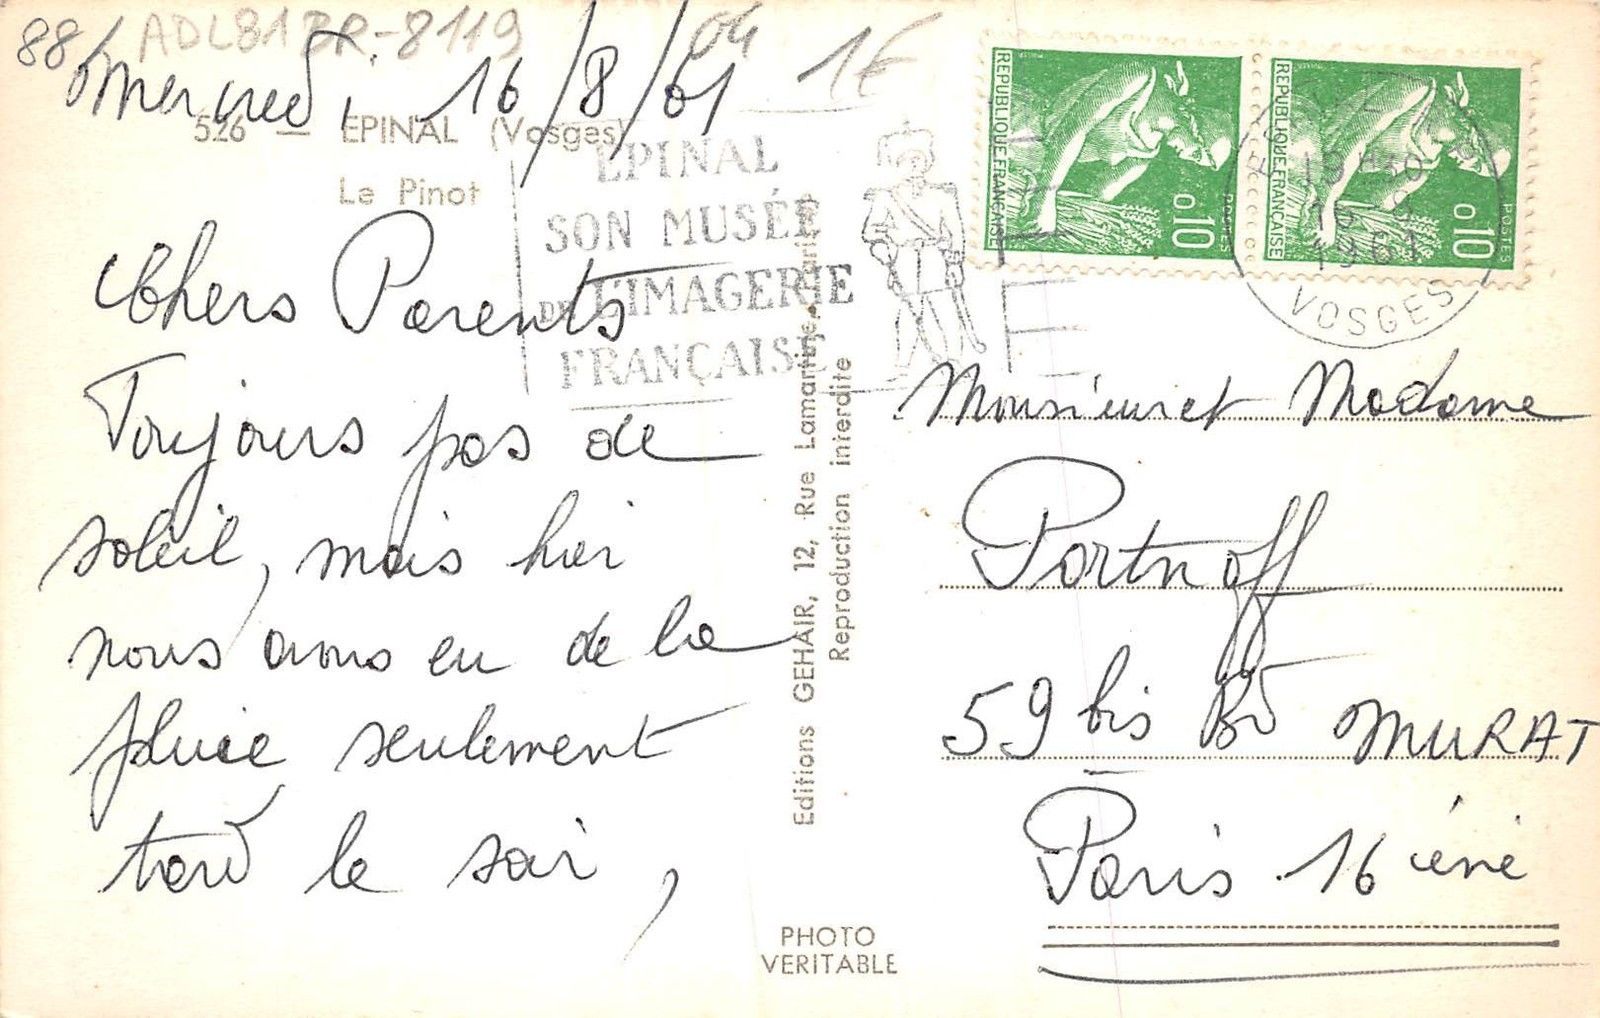 88
ADL81BR-8119
04
1€
Mercredi 16/8/61
526 — EPINAL (Vosges)
Le Pinot
EPINAL
SON MUSÉE
DE L'IMAGERIE
FRANÇAISE
Chers Parents
Toujours pas de
soleil, mais hier
nous avons eu de la
pluie seulement
tard le soir,
Editions GEHAIR, 12, Rue Lamartine, Paris
Reproduction interdite
PHOTO
VERITABLE
REPUBLIQUE FRANÇAISE
0,10
POSTES
REPUBLIQUE FRANÇAISE
0,10
POSTES
19H30
16-8
1961
VOSGES
Monsieur et Madame
Portnoff
59 bis Bd MURAT
Paris 16 ième